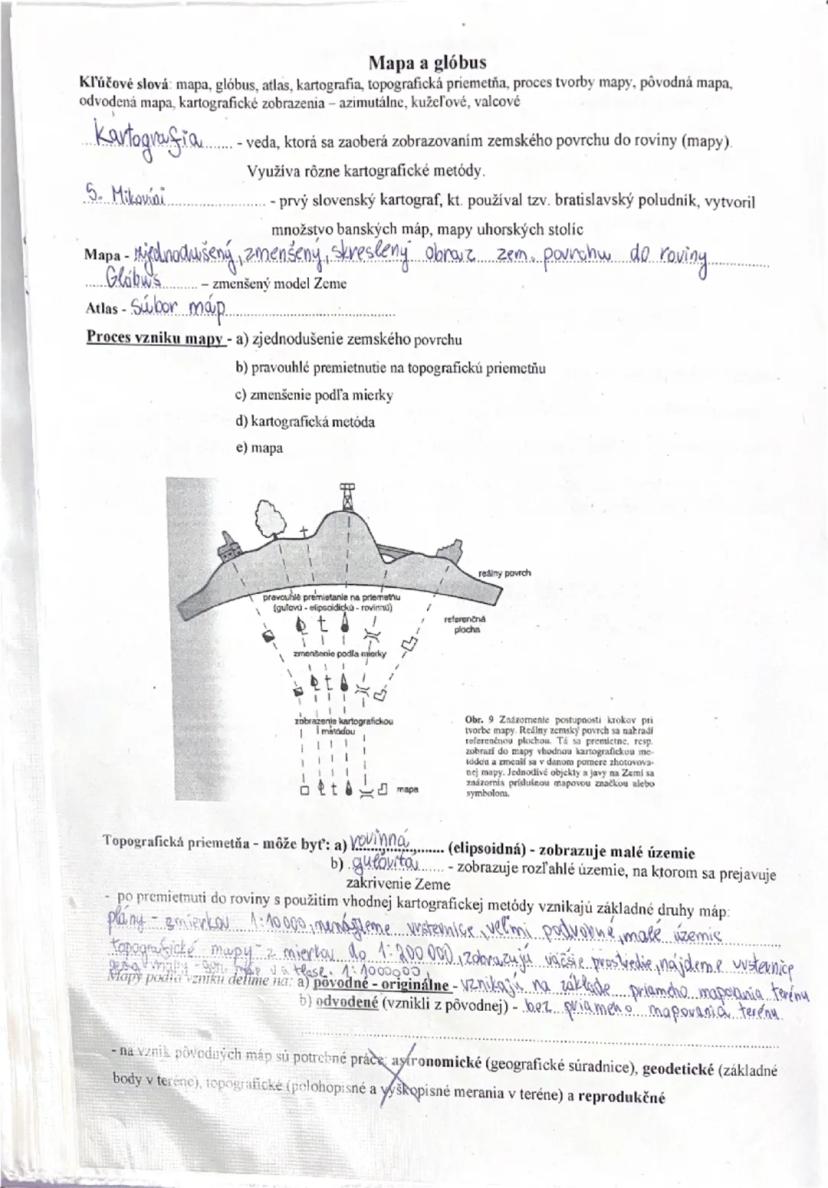 Mapa a glóbus
Kľúčové slová: mapa, glóbus, atlas, kartografia, topografická priemetňa, proces tvorby mapy, pôvodná mapa,
odvodená mapa, kartografické zobrazenia – azimutálne, kužeľové, valcové
Kartografia - veda, ktorá sa zaoberá zobrazovaním zemského povrchu do roviny (mapy).
Využíva rôzne kartografické metódy.
S. Mikovíni - prvý slovenský kartograf, kt. používal tzv. bratislavský poludník, vytvoril
množstvo banských máp, mapy uhorských stolíc
Mapa - zjednodušený, zmenšený, skreslený obraz zem. povrchu do roviny
Glóbus – zmenšený model Zeme
Atlas - súbor máp
Proces vzniku mapy - a) zjednodušenie zemského povrchu
b) pravouhlé premietnutie na topografickú priemetňu
c) zmenšenie podľa mierky
d) kartografická metóda
e) mapa
reálny povrch
pravouhlé premietanie na priemetňu
(guľovú - elipsoidickú - rovinnú)
referenčná
plocha
zmenšenie podľa mierky
zobrazenie kartografickou
metódou
mapa
Obr. 9 Znázornenie postupnosti krokov pri
tvorbe mapy. Reálny zemský povrch sa nahradí
referenčnou plochou. Tá sa premietne, resp.
zobrazí do mapy vhodnou kartografickou me-
tódou a zmenší sa v danom pomere zhotovova-
nej mapy. Jednotlivé objekty a javy na Zemi sa
znázornia príslušnou mapovou značkou alebo
symbolom.
Topografická priemetňa - môže byť: a) rovinná (elipsoidná) - zobrazuje malé územie
b) guľovitá - zobrazuje rozľahlé územie, na ktorom sa prejavuje
zakrivenie Zeme
- po premietnutí do roviny s použitím vhodnej kartografickej metódy vznikajú základné druhy máp:
plány - zmierkou 1:10000, nenájdeme vrstevnice, veľmi podrobné, malé územie
topografické mapy - z mierkou do 1:200 000, zobrazujú väčšie prostredie, nájdeme vrstevnice
mapy 1:1000000
Mapy podľa vzniku delíme na: a) pôvodné - originálne - vznikajú na základe priameho mapovania terénu
b) odvodené (vznikli z pôvodnej) - bez priameho mapovania terénu
- na vznik pôvodných máp sú potrebné práce: astronomické (geografické súradnice), geodetické (základné
body v teréne), topografické (polohopisné a výškopisné merania v teréne) a reprodukčné